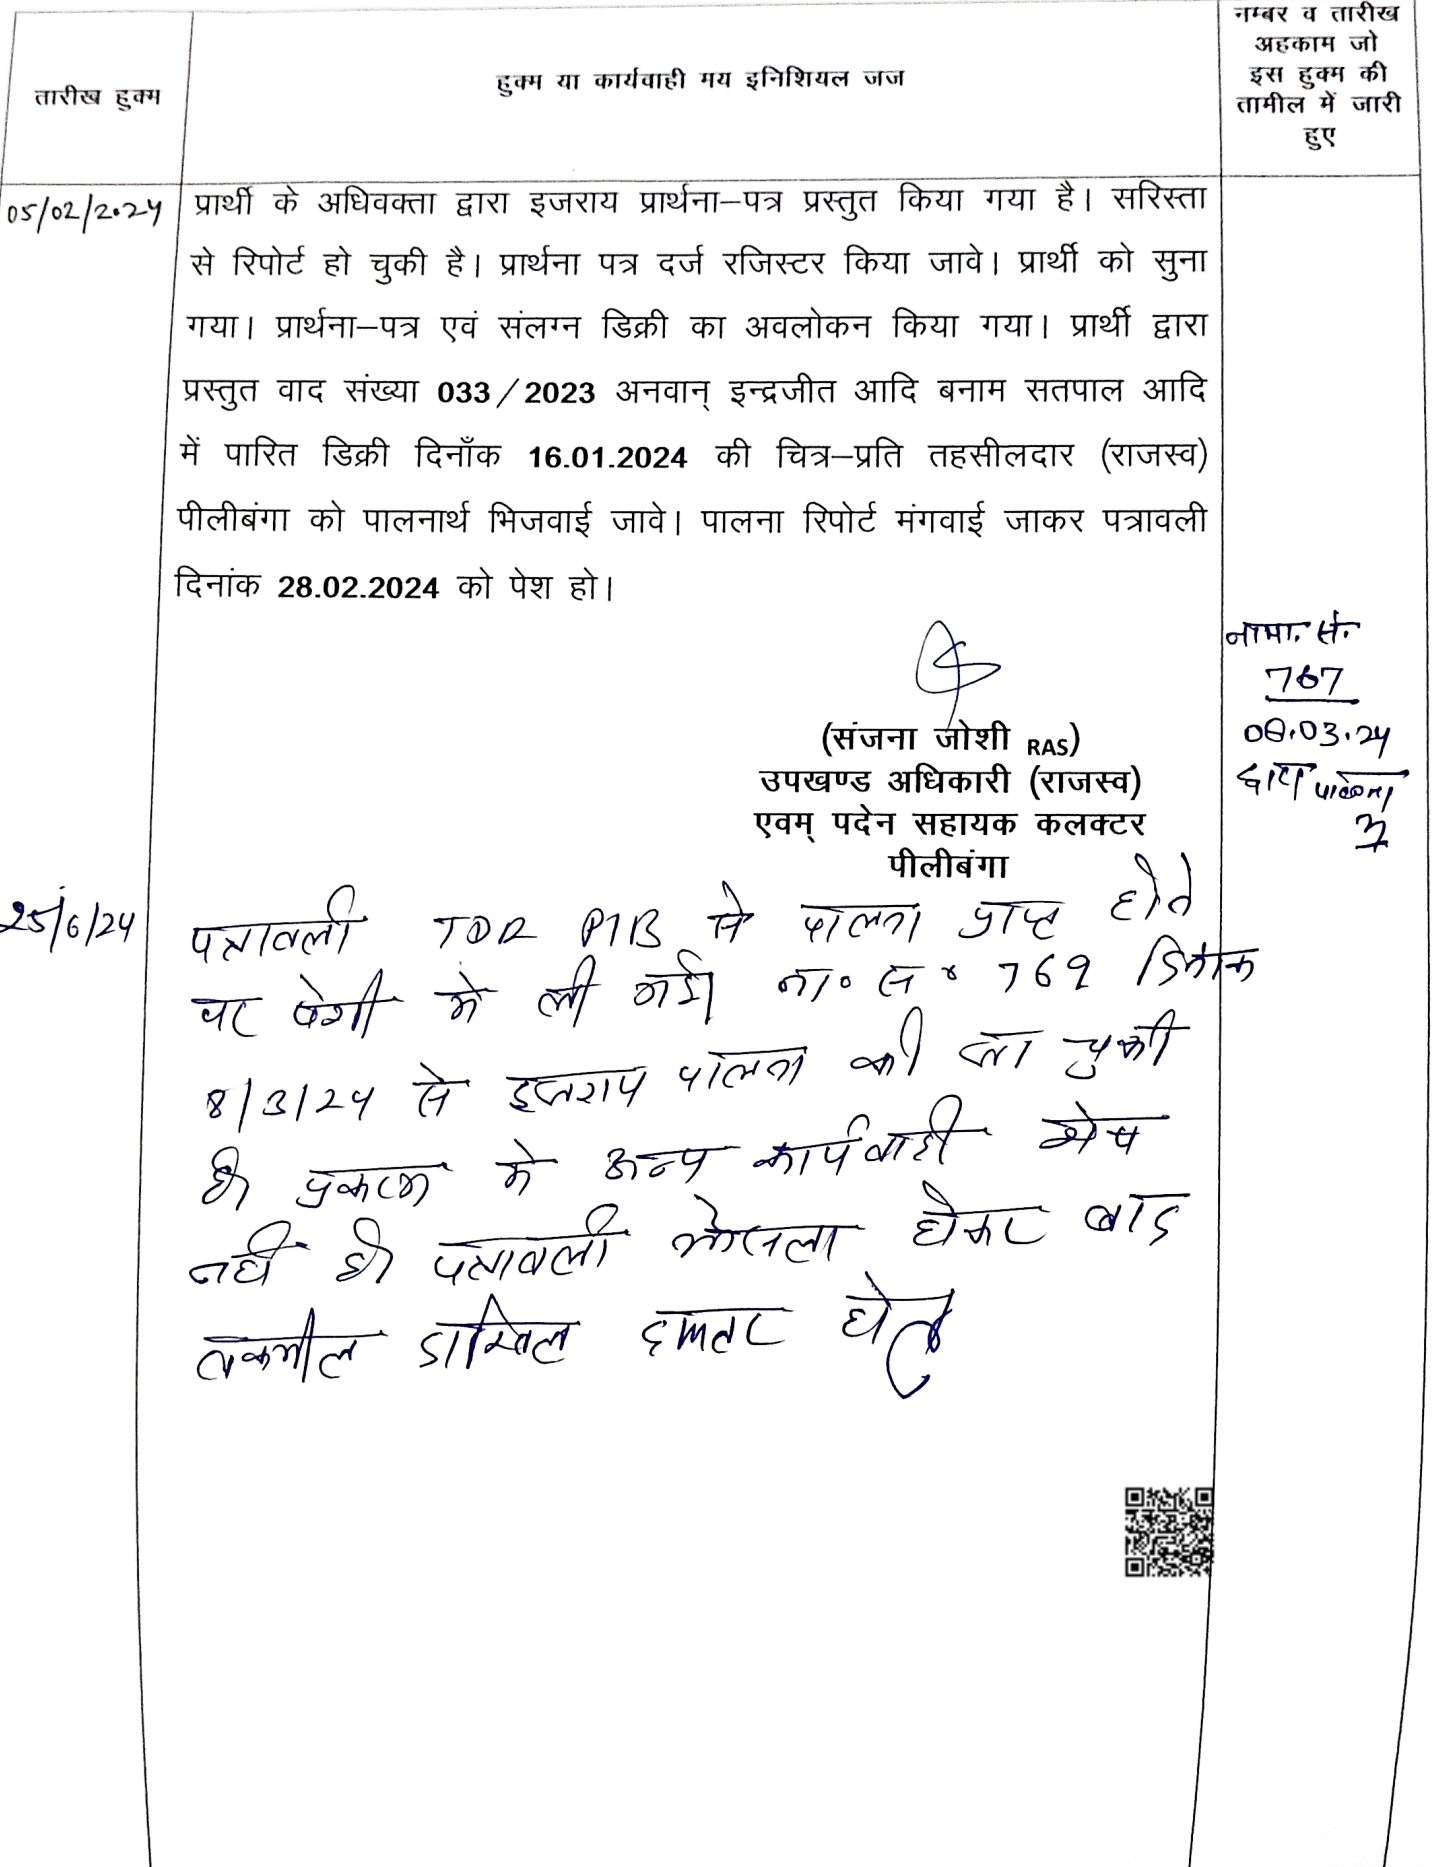 तारीख हुक्म
हुक्म या कार्यवाही मय इनिशियल जज
नम्बर व तारीख
अहकाम जो
इस हुक्म की
तामील में जारी
हुए
05/02/2024
प्रार्थी के अधिवक्ता द्वारा इजराय प्रार्थना–पत्र प्रस्तुत किया गया है। सरिस्ता
से रिपोर्ट हो चुकी है। प्रार्थना पत्र दर्ज रजिस्टर किया जावे। प्रार्थी को सुना
गया। प्रार्थना–पत्र एवं संलग्न डिक्री का अवलोकन किया गया। प्रार्थी द्वारा
प्रस्तुत वाद संख्या 033/2023 अनवान् इन्द्रजीत आदि बनाम सतपाल आदि
में पारित डिक्री दिनाँक 16.01.2024 की चित्र–प्रति तहसीलदार (राजस्व)
पीलीबंगा को पालनार्थ भिजवाई जावे। पालना रिपोर्ट मंगवाई जाकर पत्रावली
दिनांक 28.02.2024 को पेश हो।
नामा. सं.
767
08.03.24
द्वारा पालना
(संजना जोशी RAS)
उपखण्ड अधिकारी (राजस्व)
एवम् पदेन सहायक कलक्टर
पीलीबंगा
25/6/24
पत्रावली TDR PTB से पालना प्राप्त होने
पर पेशी में ली गई। ना० स० 769 दिनांक
8/3/24 से इजराय पालना की जा चुकी
है। प्रकरण में अन्य कार्यवाही शेष
नहीं है। पत्रावली फैसला होकर बाद
तकमील दाखिल दफ्तर हो।